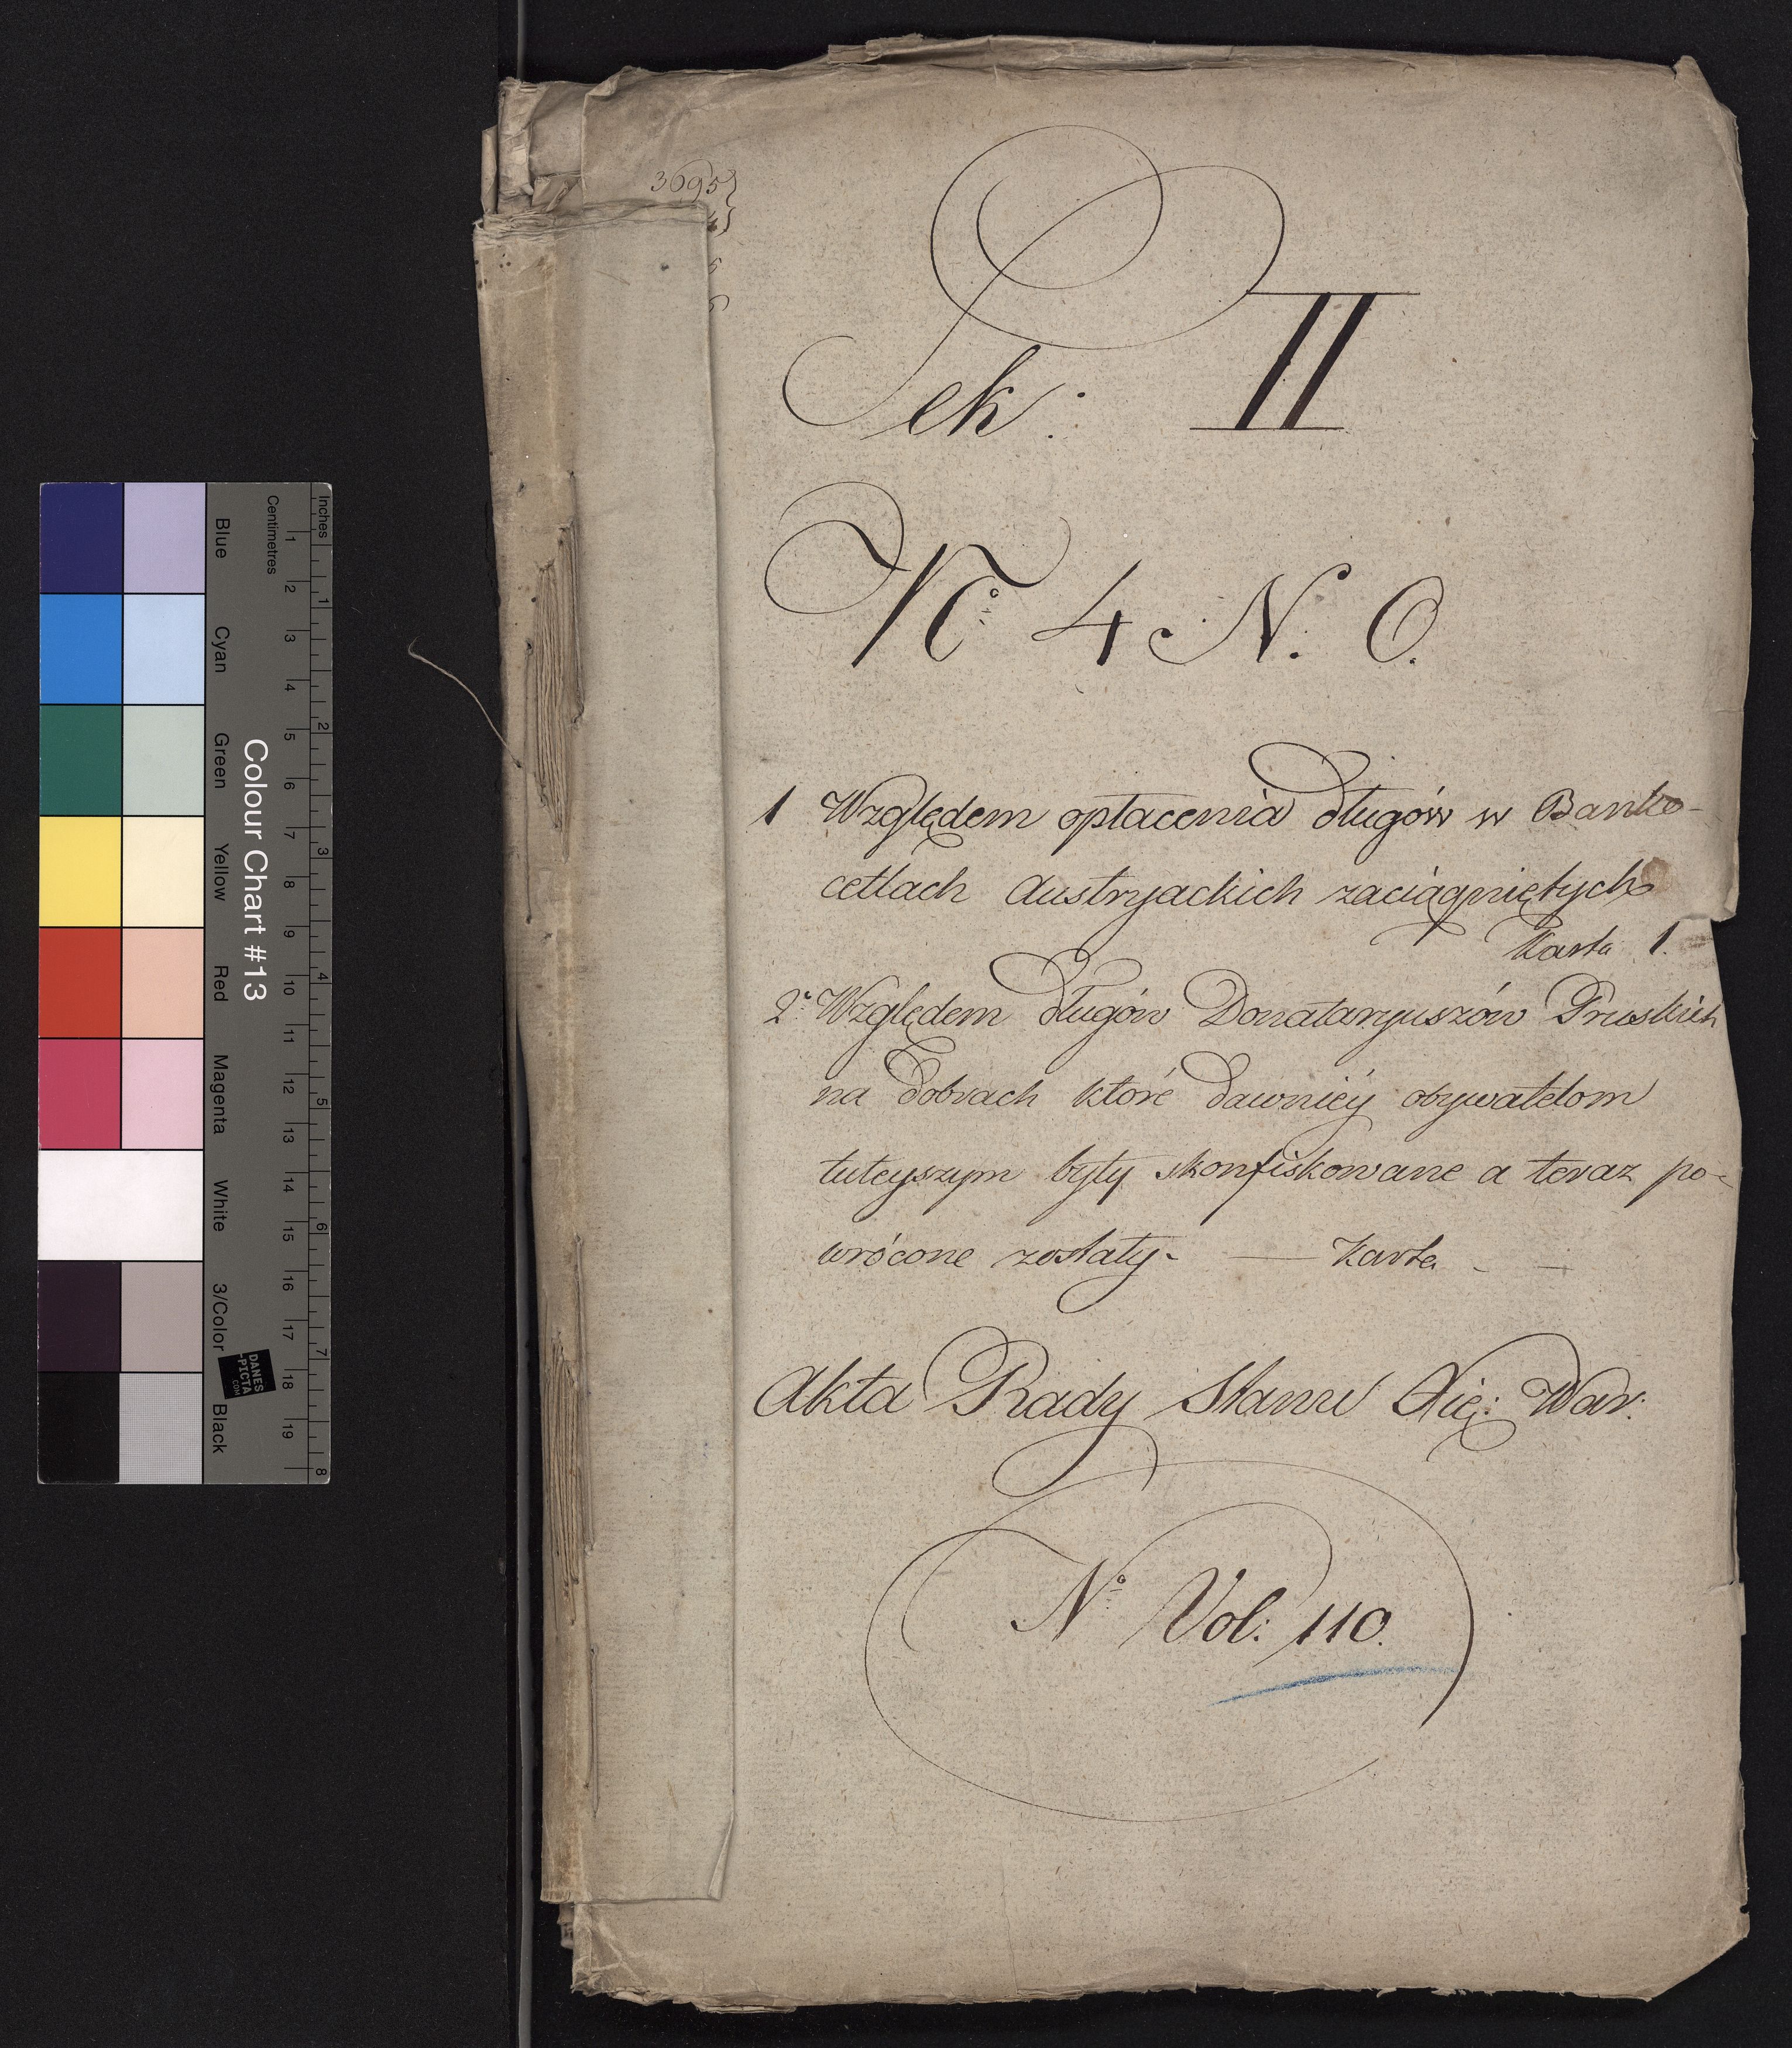 3695
Sek: II
No 4 N. O.
1 Względem opłacenia długów w Banko-
cetlach Austryackich zaciągniętych
Karta 1.
2o Względem długów Donataryuszów Pruskich
na dobrach które dawniéy obywatelom
tuteyszym były skonfiskowane a teraz po-
wrócone zostały - — Karta - —
Akta Rady Stanu Xię: War:
No Vol: 110.
Colour Chart #13
Blue Cyan Green Yellow Red Magenta White 3/Color Black
Centimetres 1 2 3 4 5 6 7 8 9 10 11 12 13 14 15 16 17 18 19
Inches 1 2 3 4 5 6 7 8
DANES
-PICTA
.COM